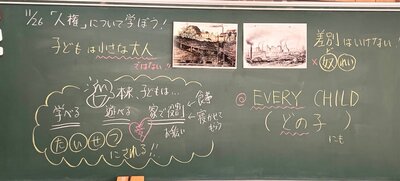 11/26 「人権」について学ぼう！
子どもは小さな大人
ではない
差別はいけない！
×奴れい
本来、子どもは…
学べる 遊べる 家で役割
食事
寝かせてもらう
お祝い
たいせつ
にされる!!
@ EVERY CHILD
(どの子)
にも